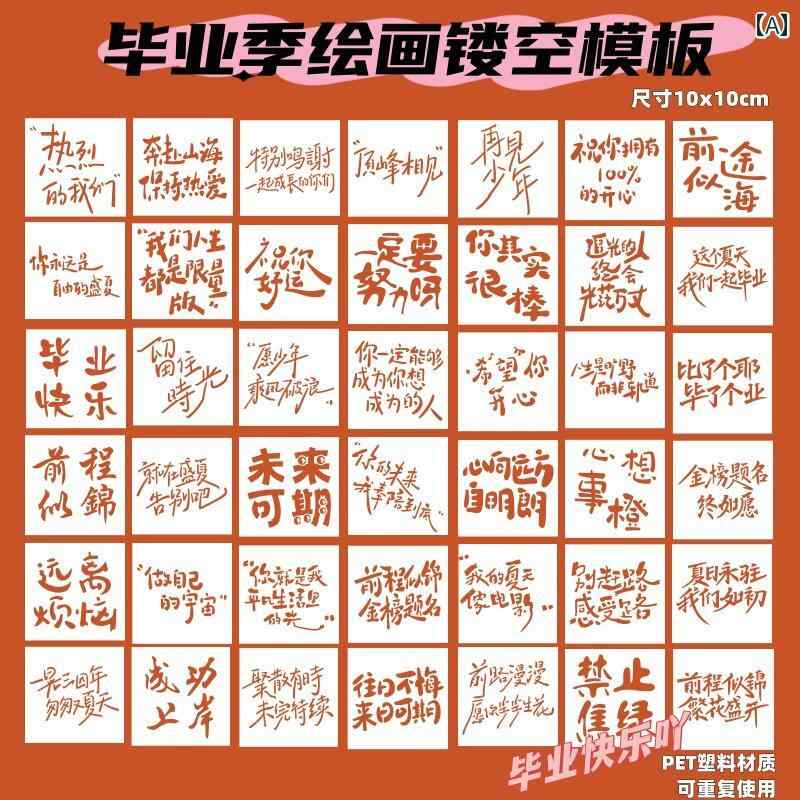 毕业季绘画镂空模板
【A】
尺寸10x10cm
"热烈
的我们"
奔赴山海
保持热爱
特别鸣謝
一起成長的你们
"顶峰相见"
再見
少年
祝你拥有
100%
的开心
前途
似海
你永远是
自由的盛夏
"我们人生
都是限量
版"
祝你
好运
一定要
努力呀
你其实
很棒
追光的人
终会
光芒万丈
这个夏天
我们一起毕业
毕业
快乐
留住
時光
"愿少年
乘风破浪"
你一定能够
成为你想
成为的人
"希望"你
开心
人生是旷野
而非轨道
比了个耶
毕了个业
前程
似錦
就在盛夏
告别吧
未来
可期
"你的未来
我奉陪到底"
心向远方
自明朗
心想
事橙
金榜题名
终如愿
远离
烦恼
"做自己
的宇宙"
"你就是我
平凡生活里
的光"
前程似錦
金榜题名
"我的夏天
像电影"
别赶路
感受路
夏日永驻
我们如初
一晃三四年
匆匆又夏天
成功
上岸
聚散有时
未完待续
往日不悔
来日可期
前路漫漫
禁止
焦绿
前程似錦
繁花盛开
毕业快乐吖
PET塑料材质
可重复使用